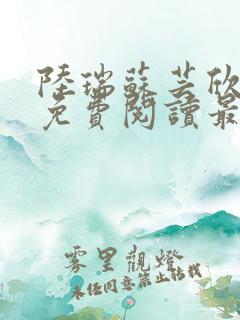 陸瑞蘇芸欣
免費閱讀最
雾里觀燈
未经同意禁止轉載